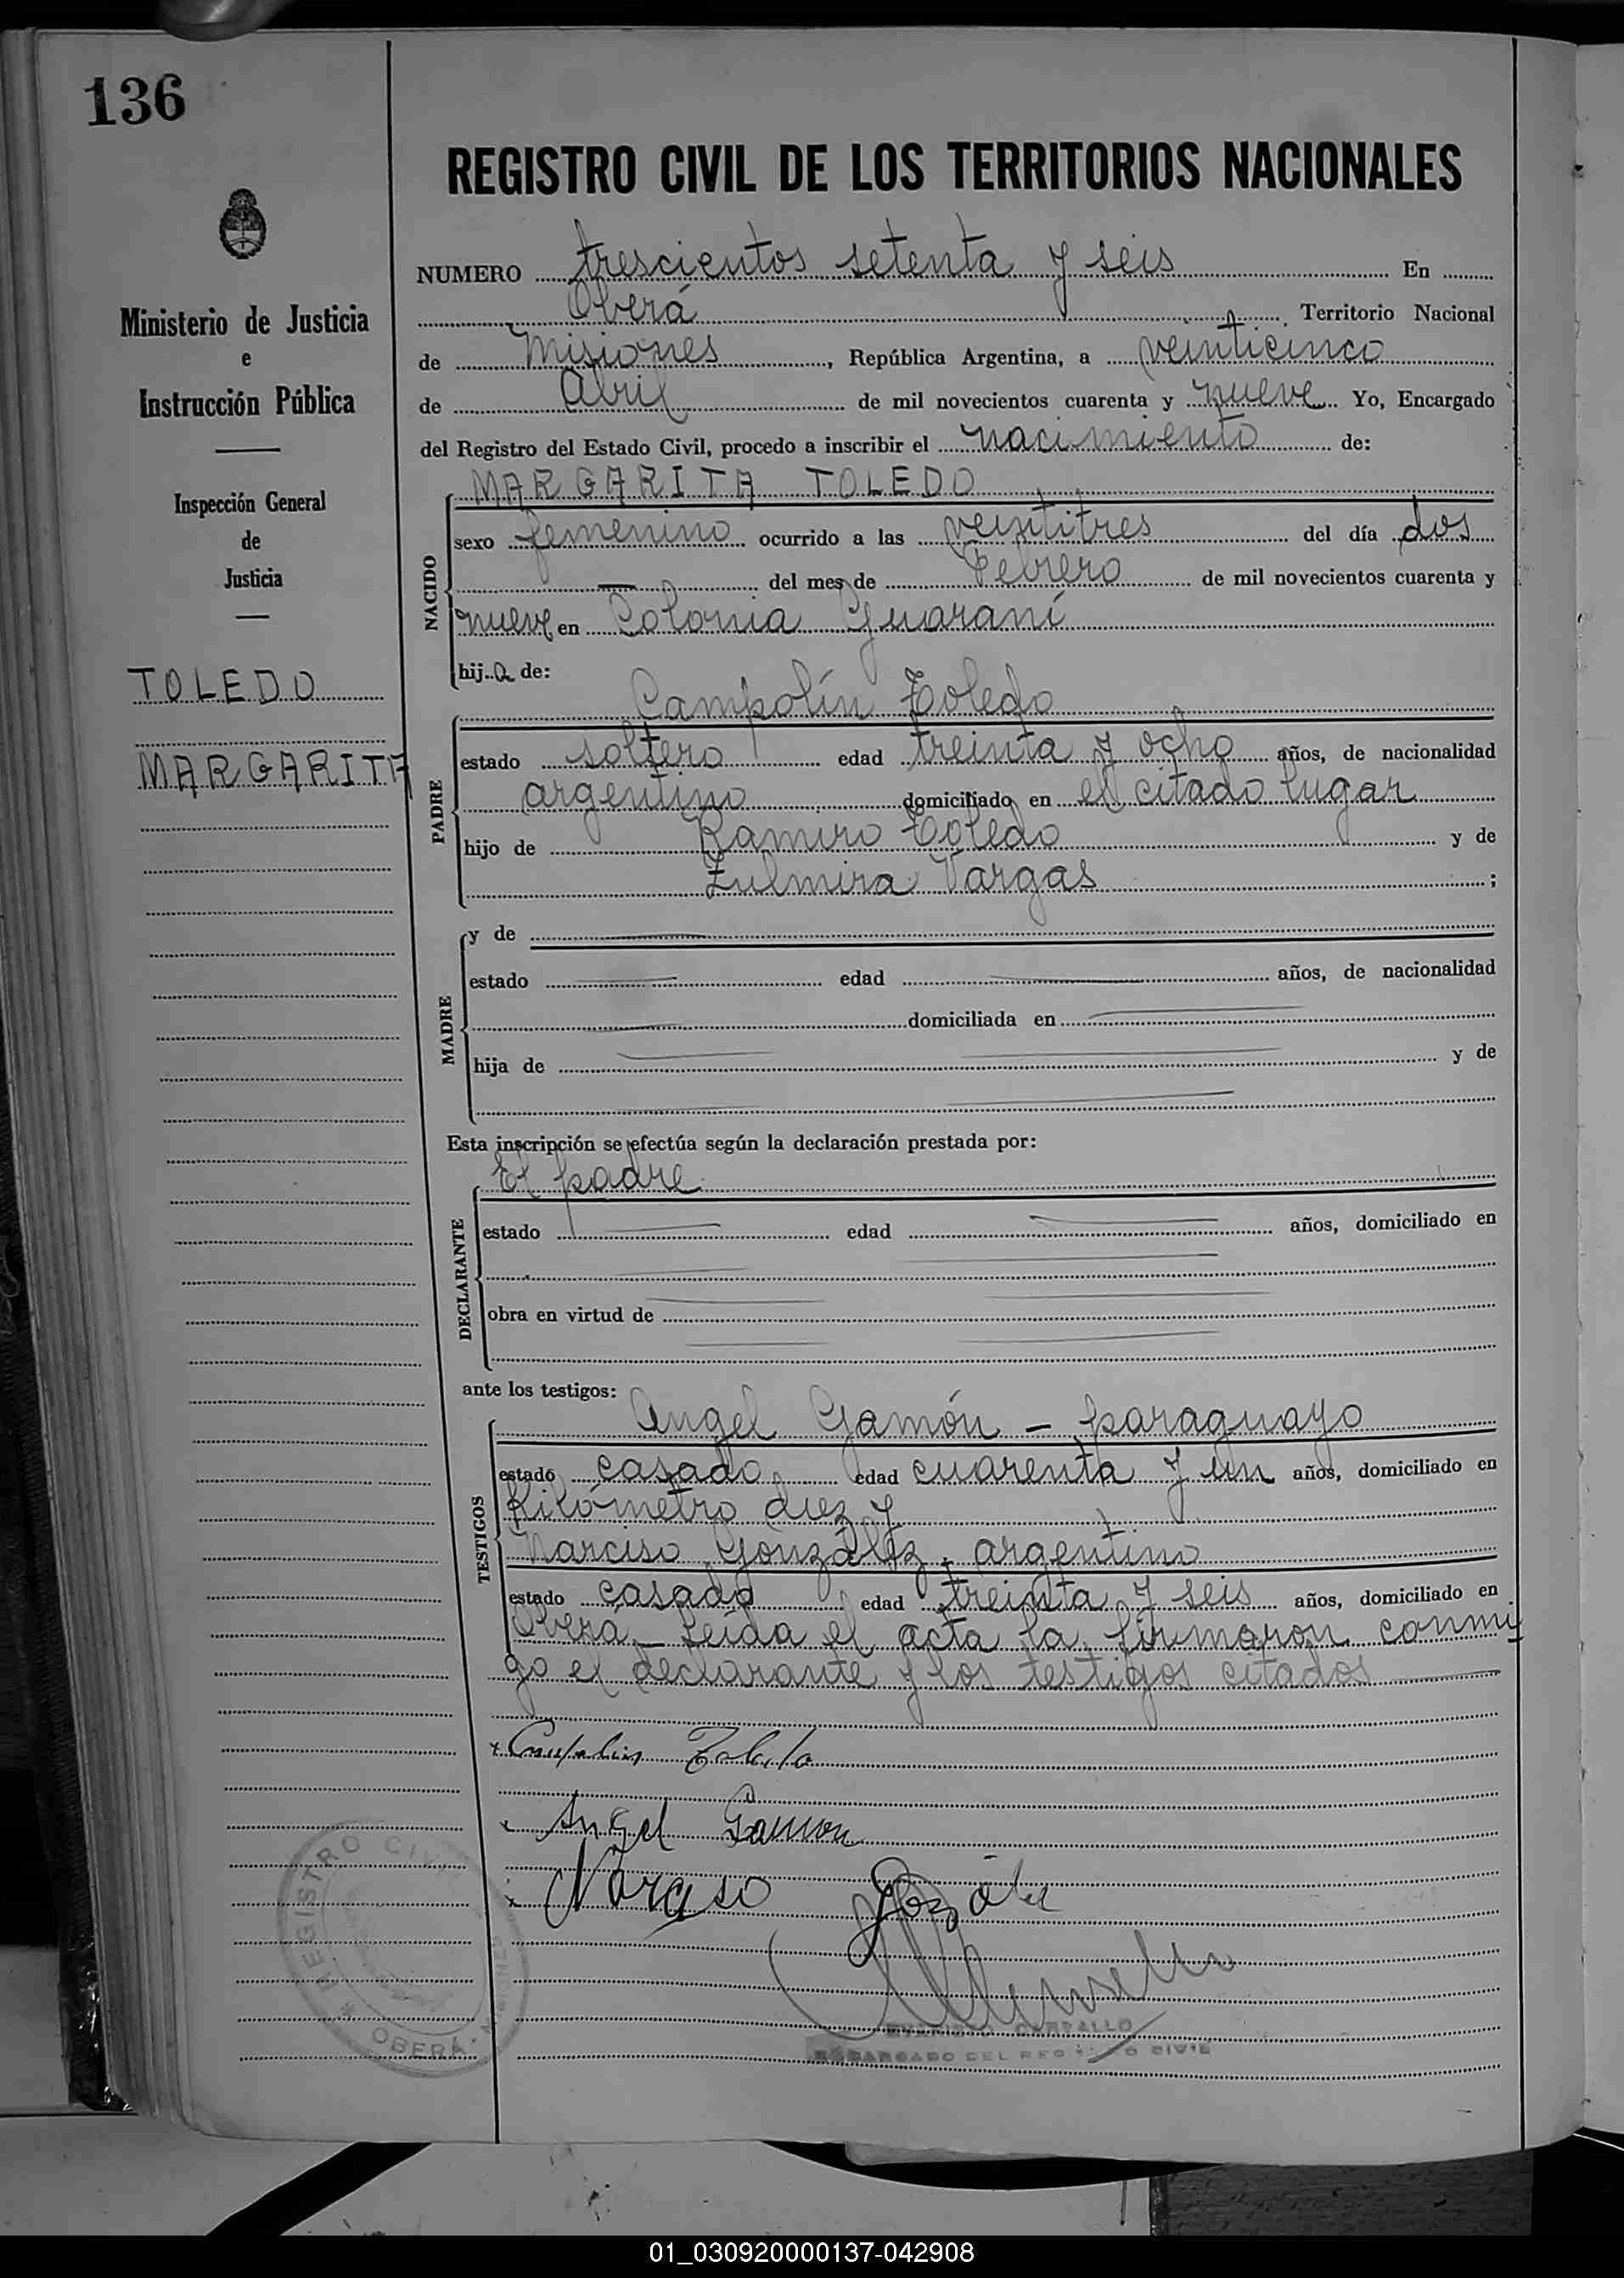 136
REGISTRO CIVIL DE LOS TERRITORIOS NACIONALES
Ministerio de Justicia
e
Instrucción Pública
Inspección General
de
Justicia
TOLEDO
MARGARITA
NUMERO trescientos setenta y seis En
Oberá Territorio Nacional
de Misiones, República Argentina, a veinticinco
de Abril de mil novecientos cuarenta y nueve Yo, Encargado
del Registro del Estado Civil, procedo a inscribir el nacimiento de:
MARGARITA TOLEDO
NACIDO
sexo femenino ocurrido a las veintitres del día dos
— del mes de Febrero de mil novecientos cuarenta y
nueve en Colonia Guaraní
hija de:
Campolín Toledo
PADRE
estado soltero edad treinta y ocho años, de nacionalidad
argentino domiciliado en el citado lugar
hijo de Ramiro Toledo y de
Zulmira Vargas ;
MADRE
y de
estado edad años, de nacionalidad
domiciliada en
hija de y de
Esta inscripción se efectúa según la declaración prestada por:
El padre
DECLARANTE
estado edad años, domiciliado en
obra en virtud de
ante los testigos:
Angel Gamón — paraguayo
TESTIGOS
estado casado edad cuarenta y un años, domiciliado en
Kilómetro diez y
Narciso González, argentino
estado casado edad treinta y seis años, domiciliado en
Oberá — Leída el acta la firmaron conmi
go el declarante y los testigos citados
Toledo
Angel Gamon
REGISTRO CIVIL
OBERA
ENCARGADO DEL REGISTRO CIVIL
01_030920000137-042908